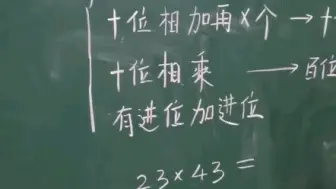 十位相加再×个→十
十位相乘→百位
有进位加进位
23×43=